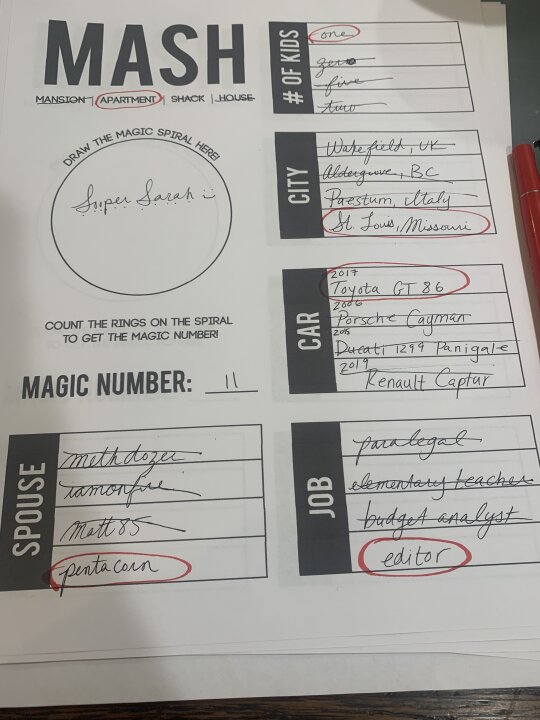 MASH
MANSION | APARTMENT | SHACK | HOUSE
DRAW THE MAGIC SPIRAL HERE!
Sooper Sarah
COUNT THE RINGS ON THE SPIRAL
TO GET THE MAGIC NUMBER!
MAGIC NUMBER: 11
# OF KIDS
one
zero
five
two
CITY
Wakefield, UK
Aldergrove, BC
Paestum, Italy
St. Louis, Missouri
CAR
2017
Toyota GT 86
2006
Porsche Cayman
2015
Ducati 1299 Panigale
2019
Renault Captur
SPOUSE
methdozer
ramonfire
Matt85
pentacorn
JOB
paralegal
elementary teacher
budget analyst
editor